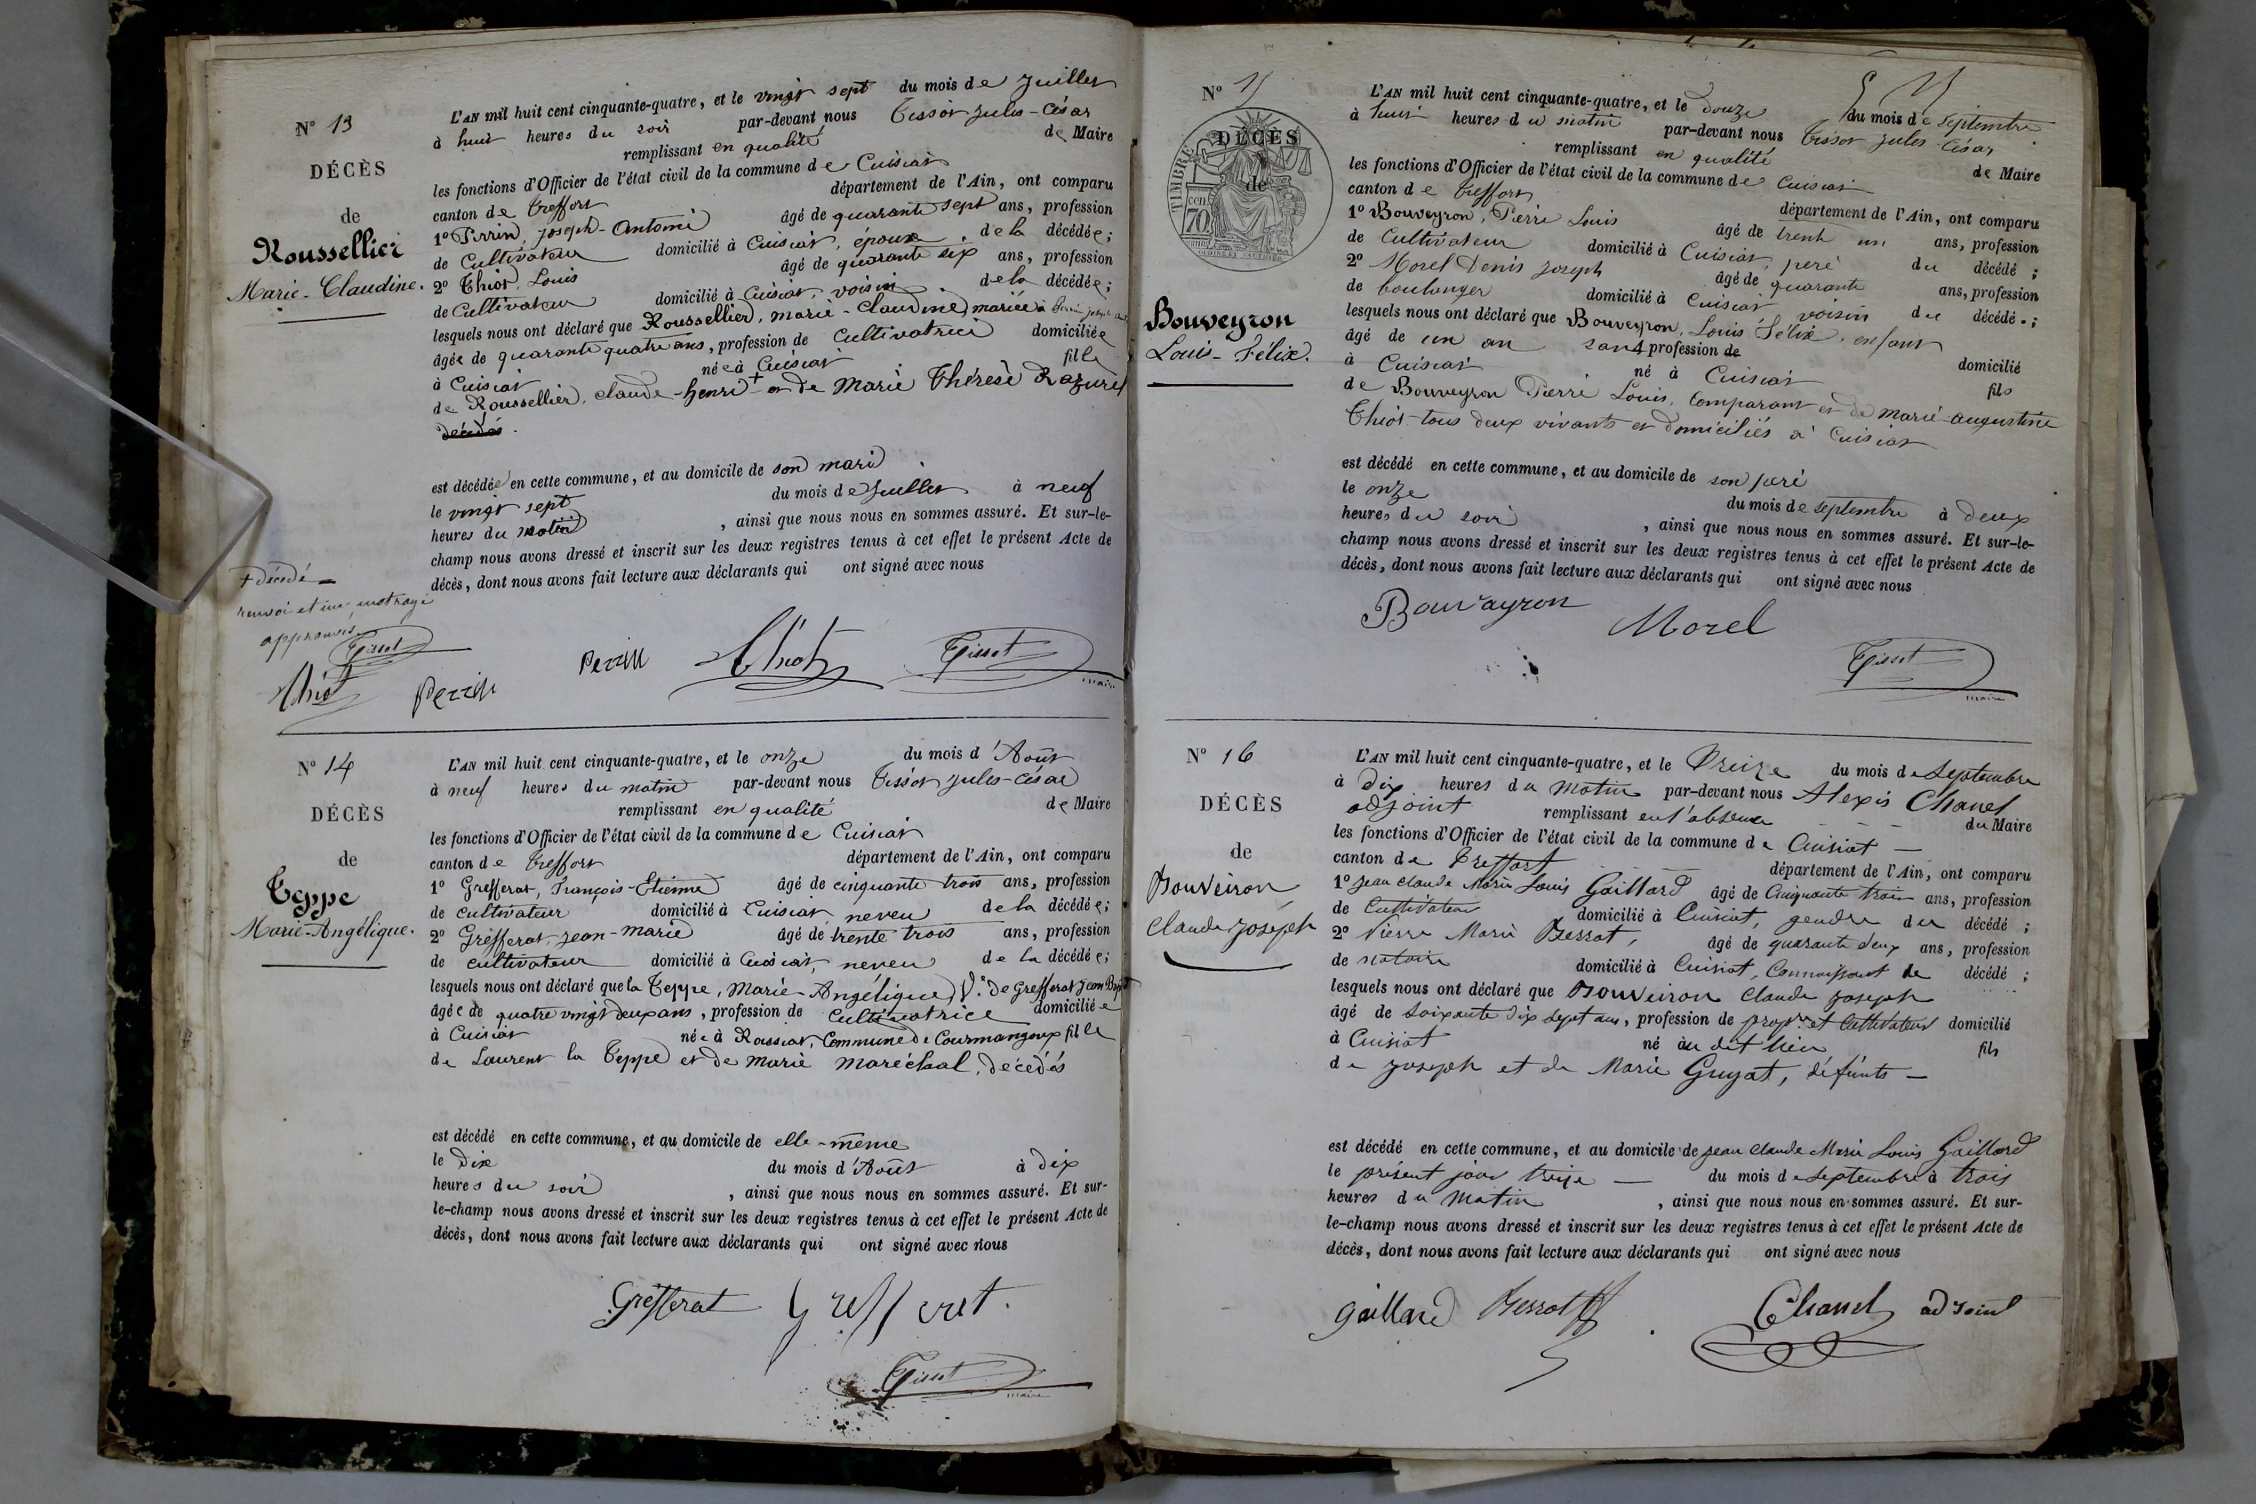 N° 13
DÉCÈS
de
Roussellier
Marie-Claudine.
L'AN mil huit cent cinquante-quatre, et le vingt sept du mois de Juillet
à huit heures du soir par-devant nous Tissot Jules-César
remplissant en qualité de Maire
les fonctions d'Officier de l'état civil de la commune de Cuisiat
canton de Treffort département de l'Ain, ont comparu
1° Perrin, Joseph-Antoine âgé de quarante sept ans, profession
de Cultivateur domicilié à Cuisiat, époux de la décédée;
2° Thiot, Louis âgé de quarante six ans, profession
de Cultivateur domicilié à Cuisiat, voisin de la décédée;
lesquels nous ont déclaré que Roussellier, Marie-Claudine, mariée à Perrin Joseph
âgée de quarante quatre ans, profession de Cultivatrice domiciliée
à Cuisiat née à Cuisiat fille
de Roussellier, Claude-Henri + et de Marie Thérèse
décédés.
est décédée en cette commune, et au domicile de son mari
le vingt sept du mois de Juillet à neuf
heures du matin, ainsi que nous nous en sommes assuré. Et sur-le-
champ nous avons dressé et inscrit sur les deux registres tenus à cet effet le présent Acte de
décès, dont nous avons fait lecture aux déclarants qui ont signé avec nous
+ décédé
renvoi et un mot rayé
approuvés
Tissot
Thiot Perrin Perrin Thiot Tissot
maire
N° 14
DÉCÈS
de
Teppe
Marie-Angélique.
L'AN mil huit cent cinquante-quatre, et le onze du mois d'Août
à neuf heures du matin par-devant nous Tissot Jules-César
remplissant en qualité de Maire
les fonctions d'Officier de l'état civil de la commune de Cuisiat
canton de Treffort département de l'Ain, ont comparu
1° Grefferat, François-Etienne âgé de cinquante trois ans, profession
de cultivateur domicilié à Cuisiat, neveu de la décédée;
2° Grefferat, Jean-Marie âgé de trente trois ans, profession
de cultivateur domicilié à Cuisiat, neveu de la décédée;
lesquels nous ont déclaré que la Teppe, Marie-Angélique, Vve de Grefferat Jean Bapt
âgée de quatre vingt deux ans, profession de Cultivatrice domiciliée
à Cuisiat née à Roissiat, Commune de Courmangoux fille
de Laurent la Teppe et de Marie Maréchal, décédés
est décédé en cette commune, et au domicile de elle-même
le dix du mois d'Août à dix
heures du soir, ainsi que nous nous en sommes assuré. Et sur-
le-champ nous avons dressé et inscrit sur les deux registres tenus à cet effet le présent Acte de
décès, dont nous avons fait lecture aux déclarants qui ont signé avec nous
Grefferat Grefferet.
Tissot
maire
N° 15
TIMBRE
cen
70
DÉCÈS
de
Bouveyron
Louis-Félix.
L'AN mil huit cent cinquante-quatre, et le douze du mois de Septembre
à huit heures du matin par-devant nous Tissot Jules-César
remplissant en qualité de Maire
les fonctions d'Officier de l'état civil de la commune de Cuisiat
canton de Treffort département de l'Ain, ont comparu
1° Bouveyron, Pierre Louis âgé de trente un ans, profession
de Cultivateur domicilié à Cuisiat, père du décédé;
2° Morel Denis Joseph âgé de quarante ans, profession
de boulanger domicilié à Cuisiat voisin du décédé.;
lesquels nous ont déclaré que Bouveyron, Louis Félix, enfant
âgé de un an sans profession de domicilié
à Cuisiat né à Cuisiat fils
de Bouveyron Pierre Louis, Comparant et de Marie-Augustine
Thiot tous deux vivants et domiciliés à Cuisiat
est décédé en cette commune, et au domicile de son père
le onze du mois de septembre à deux
heures du soir, ainsi que nous nous en sommes assuré. Et sur-le-
champ nous avons dressé et inscrit sur les deux registres tenus à cet effet le présent Acte de
décès, dont nous avons fait lecture aux déclarants qui ont signé avec nous
Bouvayron Morel
Tissot
maire
N° 16
DÉCÈS
de
Bouveiron
Claude Joseph
L'AN mil huit cent cinquante-quatre, et le Treize du mois de Septembre
à dix heures du matin par-devant nous Alexis Chanel
adjoint remplissant en l'absence du Maire
les fonctions d'Officier de l'état civil de la commune de Cuisiat
canton de Treffort département de l'Ain, ont comparu
1° Jean Claude Marie Louis Gaillard âgé de Cinquante trois ans, profession
de Cultivateur domicilié à Cuisiat, gendre du décédé;
2° Pierre Marie Bessat, âgé de quarante deux ans, profession
de notaire domicilié à Cuisiat, Connaissant le décédé;
lesquels nous ont déclaré que Bouveiron Claude Joseph
âgé de Soixante dix sept ans, profession de propre et Cultivateur domicilié
à Cuisiat né au dit lieu fils
de Joseph et de Marie Guyat, défunts
est décédé en cette commune, et au domicile de Jean Claude Marie Louis Gaillard
le présent jour treize du mois de septembre à trois
heures du matin, ainsi que nous nous en sommes assuré. Et sur-
le-champ nous avons dressé et inscrit sur les deux registres tenus à cet effet le présent Acte de
décès, dont nous avons fait lecture aux déclarants qui ont signé avec nous
Gaillard Bessat Chanel adjoint